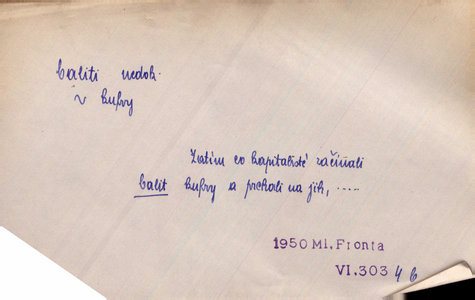 baliti nedok.
~ kufry
Zatím co kapitalisté začínali
balit kufry a prchali na jih, .....
1950 Ml. Fronta
VI.303 4 b